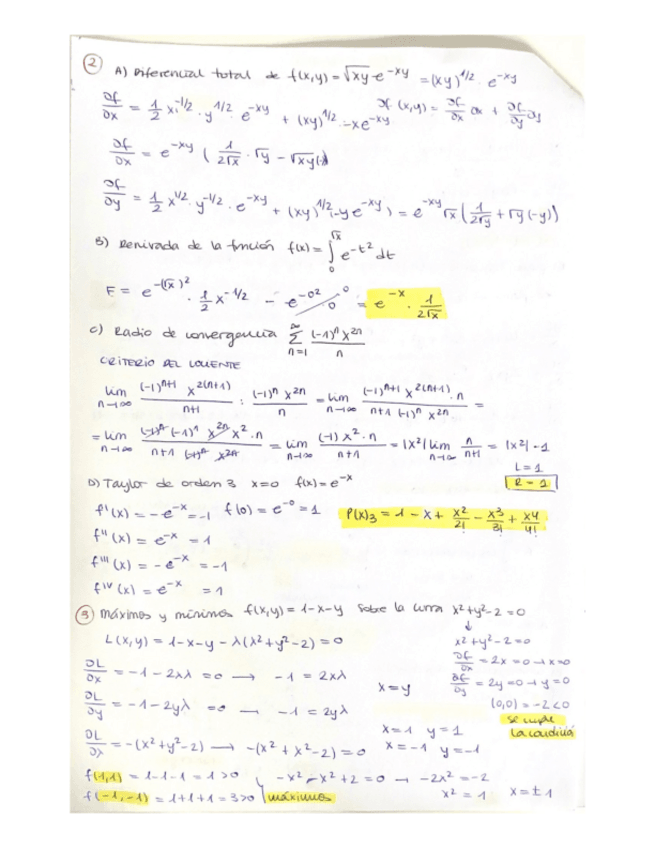 2
A) Diferencial total de f(x,y) = √xy·e^-xy = (xy)^1/2 · e^-xy
∂f/∂x = 1/2 x^-1/2 · y^1/2 · e^-xy + (xy)^1/2 · -xe^-xy
∂f (x,y) = ∂f/∂x ∂x + ∂f/∂y ∂y
∂f/∂x = e^-xy ( 1/2√x · √y - √xy(·)
∂f/∂y = 1/2 x^1/2 · y^-1/2 · e^-xy + (xy)^1/2 (-y e^-xy) = e^-xy √x ( 1/2√y + √y (-y))
B) Derivada de la función f(x) = ∫_0^√x e^-t² dt
F = e^-(√x)² · 1/2 x^-1/2 - e^-0² · 0 0 = e^-x · 1/2√x
C) Radio de convergencia ∑_{n=1}^∞ (-1)^n x^2n / n
CRITERIO DEL COCIENTE
lim n→∞ (-1)^n+1 x^2(n+1) / n+1 : (-1)^n x^2n / n = lim n→∞ (-1)^n+1 x^2(n+1) · n / n+1 (-1)^n x^2n =
= lim n→∞ (-1)^n (-1)^1 x^2n x² · n / n+1 (-1)^n x^2n = lim n→∞ (-1) x² · n / n+1 = |x²| lim n→∞ n/n+1 = |x²| · 1
L = 1
R = 1
D) Taylor de orden 3 x=0 f(x) = e^-x
f'(x) = -e^-x = -1 f(0) = e^-0 = 1 P(x)3 = 1 - x + x2/2! - x3/3! + x4/4!
f''(x) = e^-x = 1
f'''(x) = -e^-x = -1
f^IV (x) = e^-x = 1
3 máximos y mínimos f(x,y) = 1-x-y sobre la curva x²+y²-2=0
↓
L(x,y) = 1-x-y - λ(x²+y²-2) = 0
x²+y²-2=0
∂L/∂x = -1 - 2xλ = 0 → -1 = 2xλ
∂f/∂x = 2x = 0 → x=0
x=y
∂f/∂y = 2y = 0 → y=0
∂L/∂y = -1 - 2yλ = 0 → -1 = 2yλ
(0,0) = -2 < 0
se cumple
la condición
∂L/∂λ = -(x²+y²-2) → -(x²+x²-2) = 0
x=1 y=1
x=-1 y=-1
f(1,1) = 1-1-1 = 1 > 0
-x² - x² + 2 = 0 → -2x² = -2
f(-1,-1) = 1+1+1 = 3 > 0 máximos
x² = 1 x = ±1